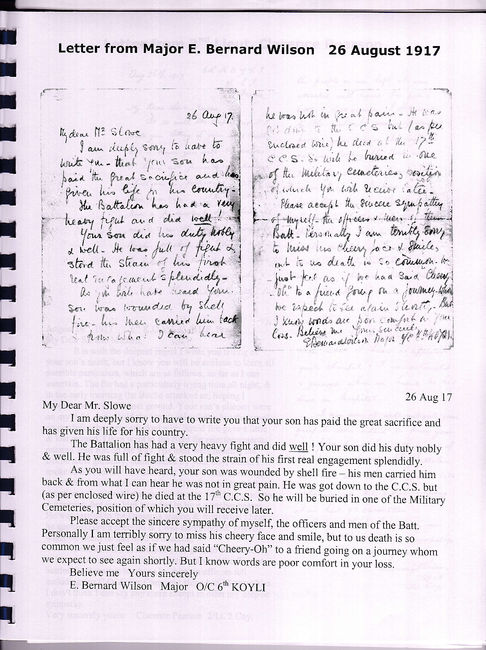 Letter from Major E. Bernard Wilson 26 August 1917
26 Aug 17.
My dear Mr. Slowe
I am deeply sorry to have to
write you - that your son has
paid the great sacrifice and has
given his life for his country.
The Battalion has had a very
heavy fight and did well!
Your son did his duty nobly
& well. He was full of fight &
stood the strain of his first
real engagement splendidly -
As you will have heard your
son was wounded by shell
fire - his men carried him back
& from what I can hear
he was not in great pain - He was
got down to the C.C.S but (as per
enclosed wire) he died at the 17th
C.C.S. So will be buried in one
of the Military Cemeteries, position
of which you will receive later.
Please accept the sincere sympathy
of myself, the officers & men of the
Batt. Personally I am terribly sorry
to miss his cheery face & smile,
but to us death is so common we
just feel as if we had said "Cheery-
Oh" to a friend going on a journey whom
we expect to see again shortly. But
I know words are poor comfort in your
loss. Believe me Yours sincerely
E Bernard Wilson Major O/C 6th KOYLI
26 Aug 17
My Dear Mr. Slowe
I am deeply sorry to have to write you that your son has paid the great sacrifice and
has given his life for his country.
The Battalion has had a very heavy fight and did well ! Your son did his duty nobly
& well. He was full of fight & stood the strain of his first real engagement splendidly.
As you will have heard, your son was wounded by shell fire – his men carried him
back & from what I can hear he was not in great pain. He was got down to the C.C.S. but
(as per enclosed wire) he died at the 17th C.C.S. So he will be buried in one of the Military
Cemeteries, position of which you will receive later.
Please accept the sincere sympathy of myself, the officers and men of the Batt.
Personally I am terribly sorry to miss his cheery face and smile, but to us death is so
common we just feel as if we had said "Cheery-Oh" to a friend going on a journey whom
we expect to see again shortly. But I know words are poor comfort in your loss.
Believe me Yours sincerely
E. Bernard Wilson Major O/C 6th KOYLI